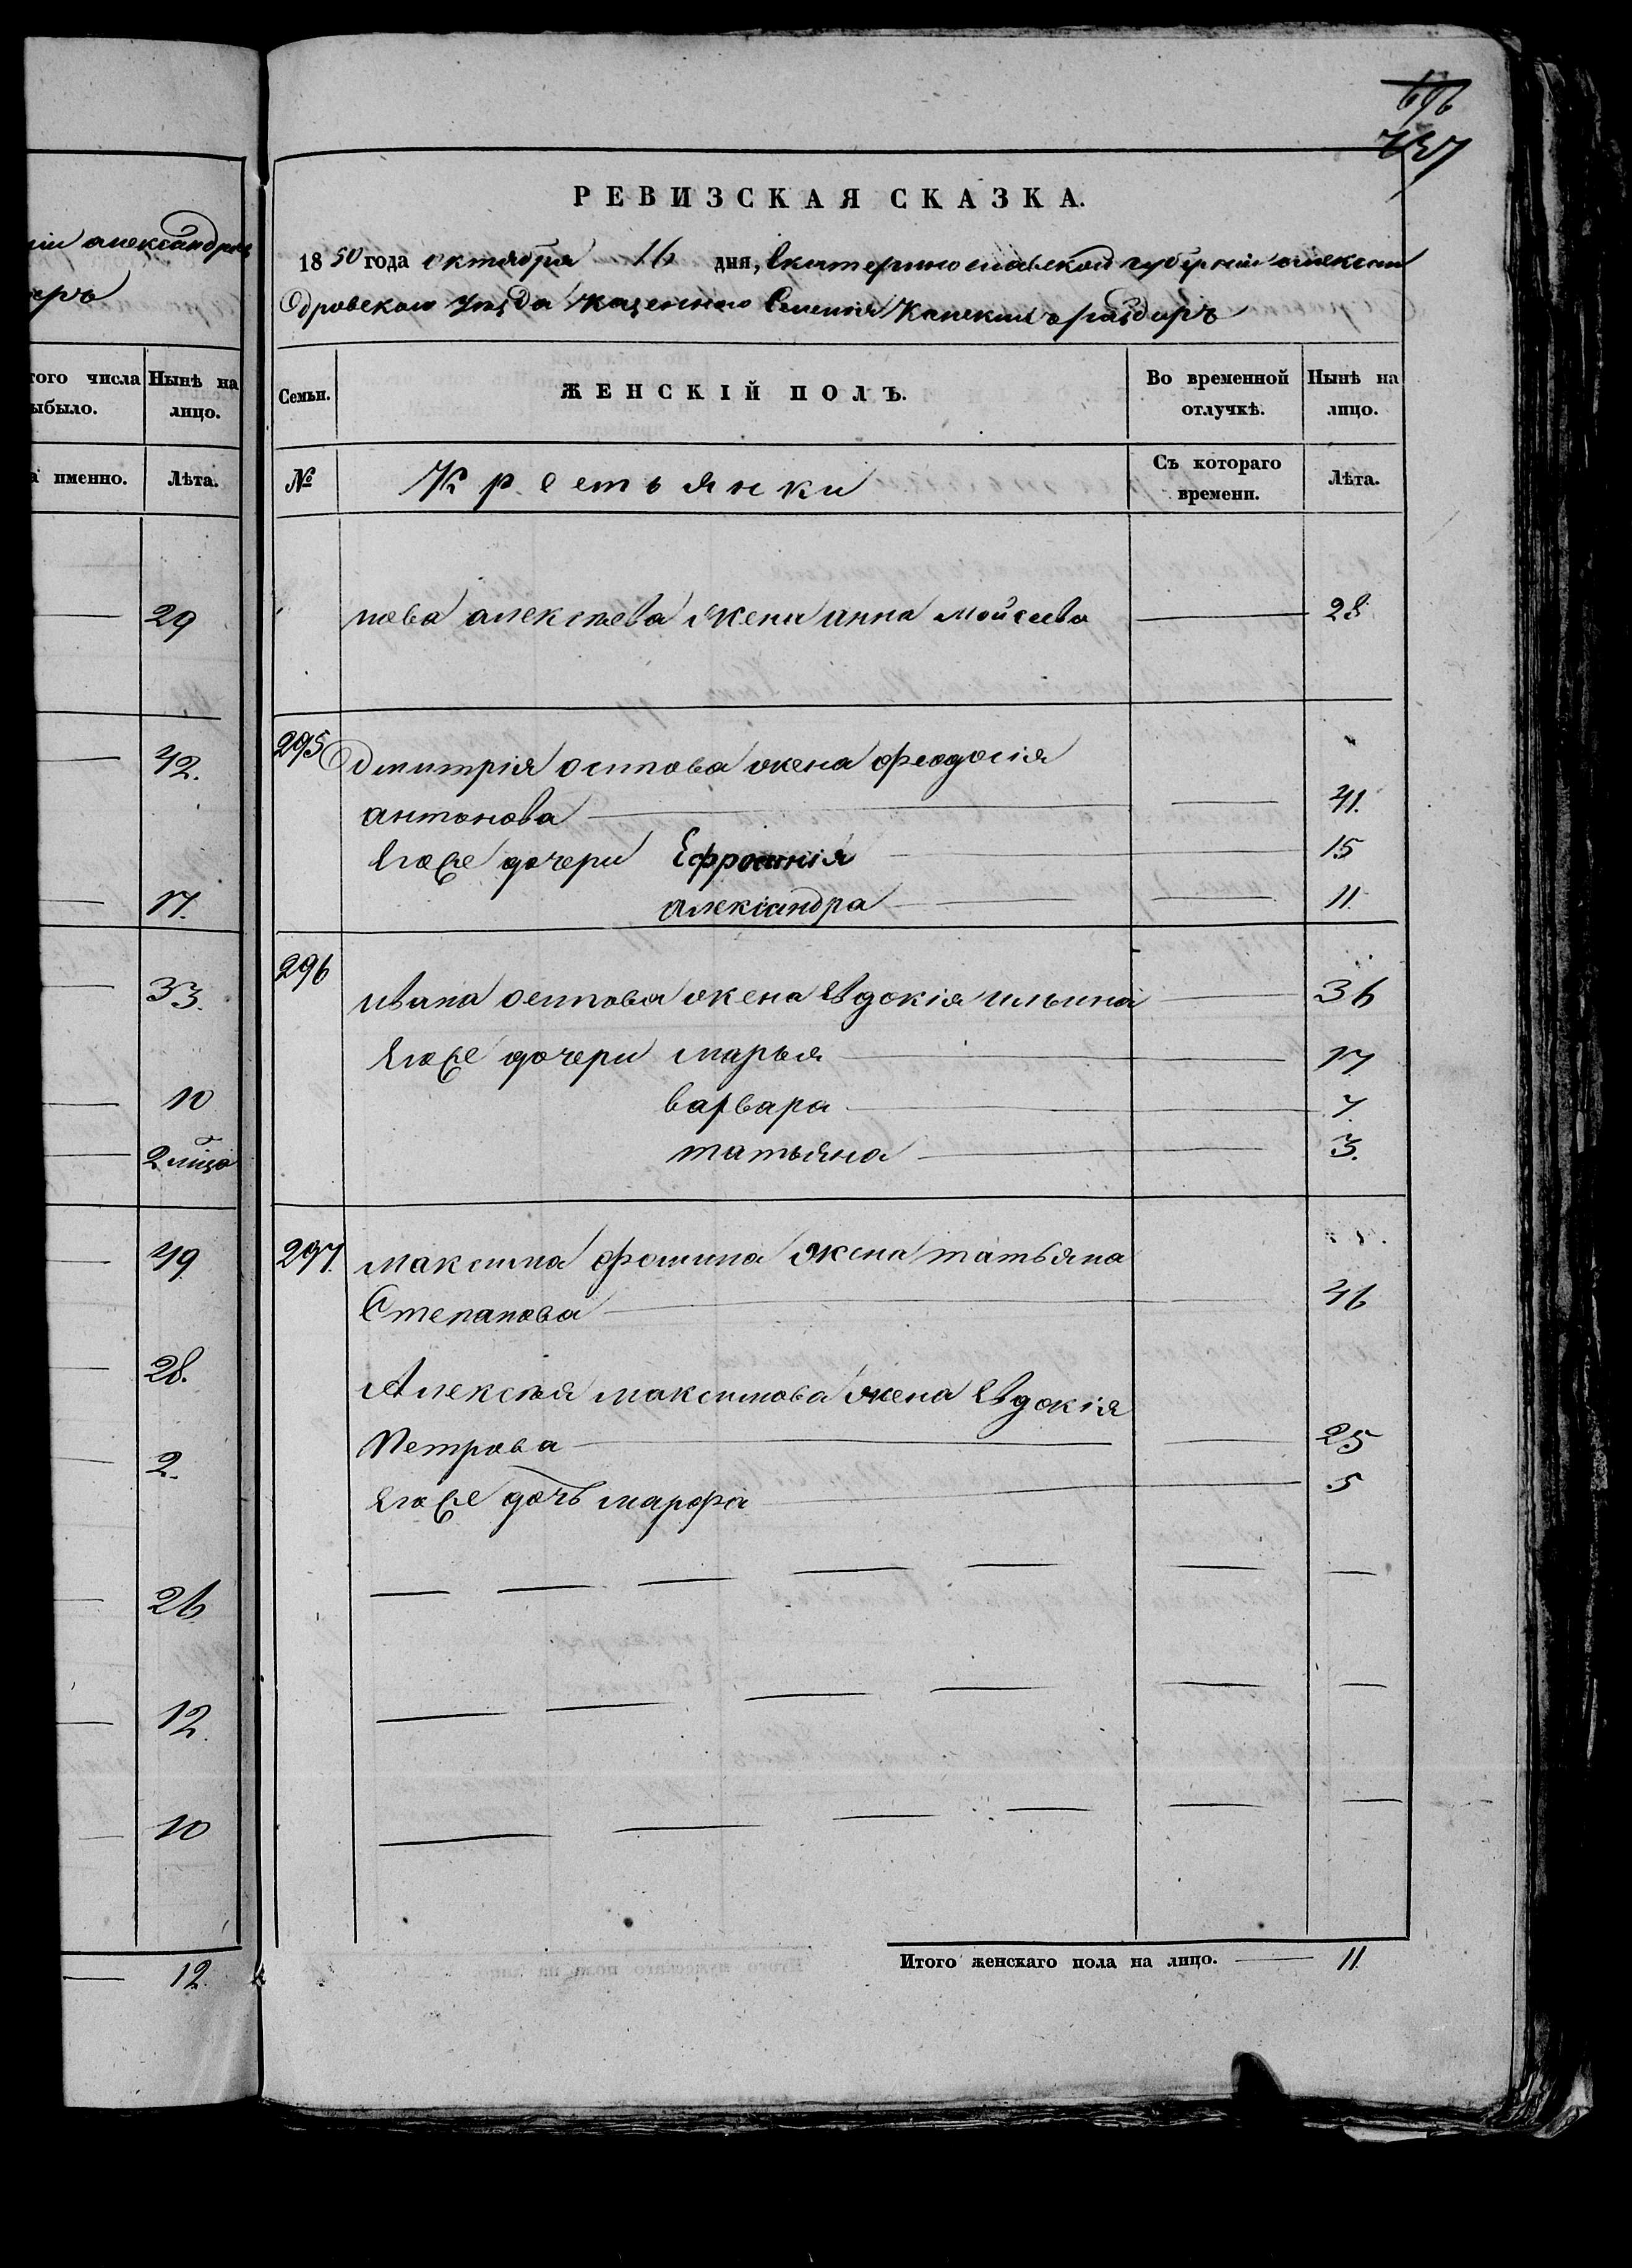 696
737
ніи александров
еръ
того числа
ыбыло.
Нынѣ на
лицо.
а именно.
Лѣта.
29
42.
17.
33.
10
2 мца
49
28.
2.
26
12.
10
12.
РЕВИЗСКАЯ СКАЗКА.
1850 года октября 16 дня, Екатеринославской губерніи александровскаго
уѣзда казеннаго Селенія
Семьи.
ЖЕНСКІЙ ПОЛЪ.
Во временной
отлучкѣ.
Нынѣ на
лицо.
№
Крестьянки
Съ котораго
времени.
Лѣта.
алексѣева жена анна Мойсеева 28
295 Дмитрія осипова жена феодосія
антонова 41.
Егоже дочери Ефросинія 15
александра 11.
296
ивана осипова жена Евдокія ильина 36
Егоже дочери марья 17
варвара 7.
татьяна 3.
297. максима фомина жена татьяна
Степанова 46
Алексѣя максимова жена Евдокія
Петрова 25
Егоже дочь марфа 5
Итого женскаго пола на лицо. 11.